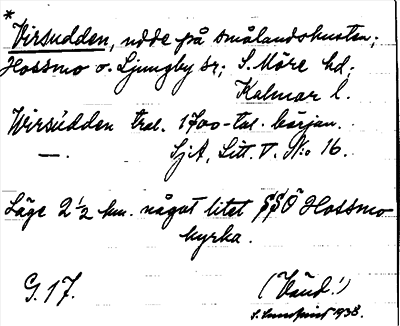 *
Virsudden, udde på smålandskusten;
Hossmo o. Ljungby sr; S. Möre hd.
Kalmar l.
Wirsudden trol. 1700-tal. början.
—. SjA, Litt. V. No 16.
Läge 2 1/2 km. något litet SSÖ Hossmo
kyrka.
G. 17. (Vänd!)
1938.